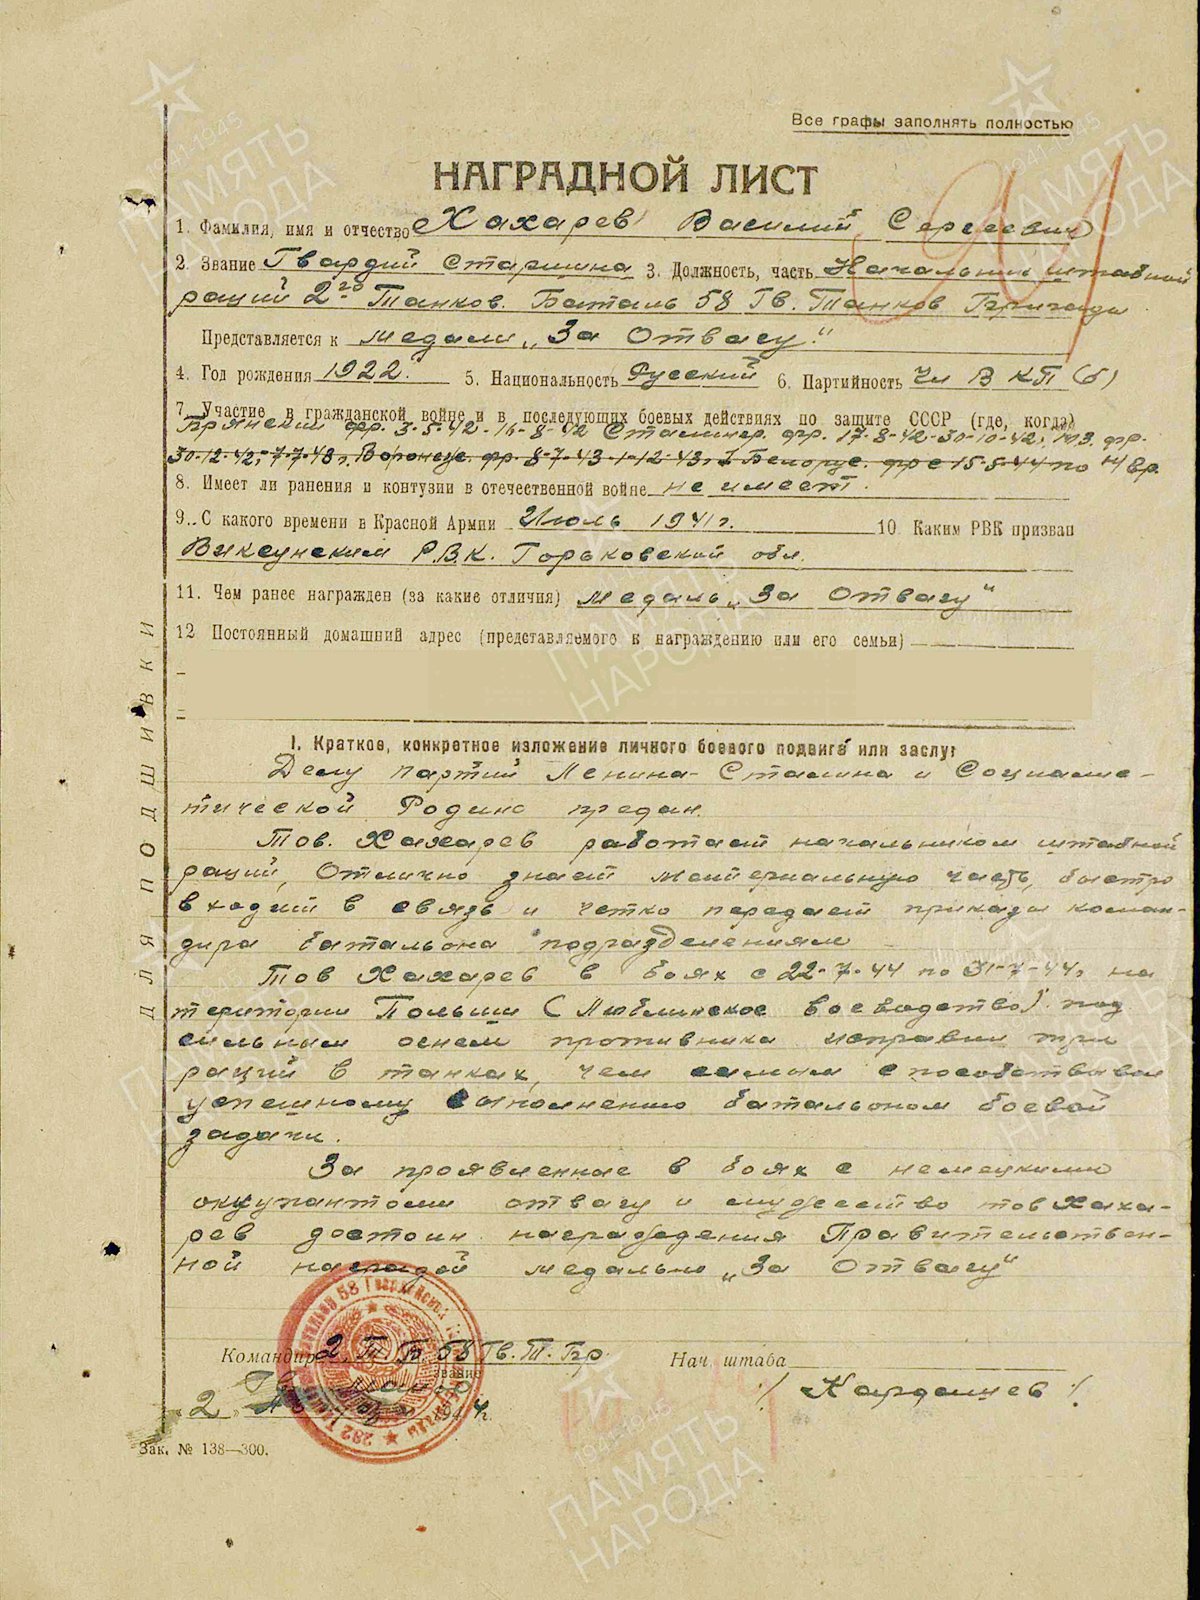 Все графы заполнять полностью
НАГРАДНОЙ ЛИСТ
1. Фамилия, имя и отчество Хахарев Василий Сергеевич
2. Звание Гвардий Старшина 3. Должность, часть Начальник штабной
раций 2го Танков. Баталь 58 Гв. Танков Бригады
Представляется к медали „За Отвагу"
4. Год рождения 1922. 5. Национальность Русский 6. Партийность Чл ВКП(б)
7. Участие в гражданской войне и в последующих боевых действиях по защите СССР (где, когда)
Брянский фр. 3-5-42-16-8-42 Сталингр. фр. 17-8-42-30-10-42, ЮЗ. фр.
30-12-42, 7-7-43г. Воронеж. фр. 8-7-43-1-12-43г. 1 Белорус. фр с 15-5-44 по н/вр.
8. Имеет ли ранения и контузии в отечественной войне не имеет.
9. С какого времени в Красной Армии Июль 1941г. 10. Каким РВК призван
Виксунским Р.В.К. Горьковской обл.
11. Чем ранее награжден (за какие отличия) Медаль „За Отвагу"
12 Постоянный домашний адрес (представляемого к награждению или его семьи)
I. Краткое, конкретное изложение личного боевого подвига или заслуг
Делу партий Ленина-Сталина и Социалис-
тической Родине предан.
Тов. Хахарев работает начальником штабной
раций, Отлично знает материальную часть, быстро
входит в связь и четко передает приказы коман-
дира батальона подразделениям
Тов Хахарев в боях с 22-7-44 по 31-7-44г на
територии Польши (Люблинское воеводство) под
сильным огнем противника исправил три
раций в танках, чем самым способствовал
успешному выполнению батальоном боевой
задачи.
За проявленное в боях с немецкими
оккупантами отвагу и мужество тов Хаха-
рев достоин награждения Правительствен-
ной наградой медалью „За Отвагу"
Командир 2 Т. Б. 58 Гв. Т. Бр. Нач. штаба
звание
Гв майор / Кардашев /
2 1944г.
Зак. № 138—300.
ДЛЯ ПОДШИВКИ
1941-1945
ПАМЯТЬ
НАРОДА